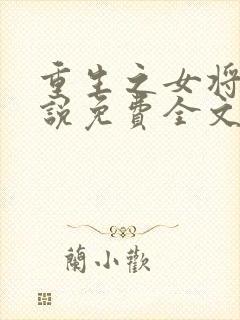 重生之女将
説免費全文
蘭小歡